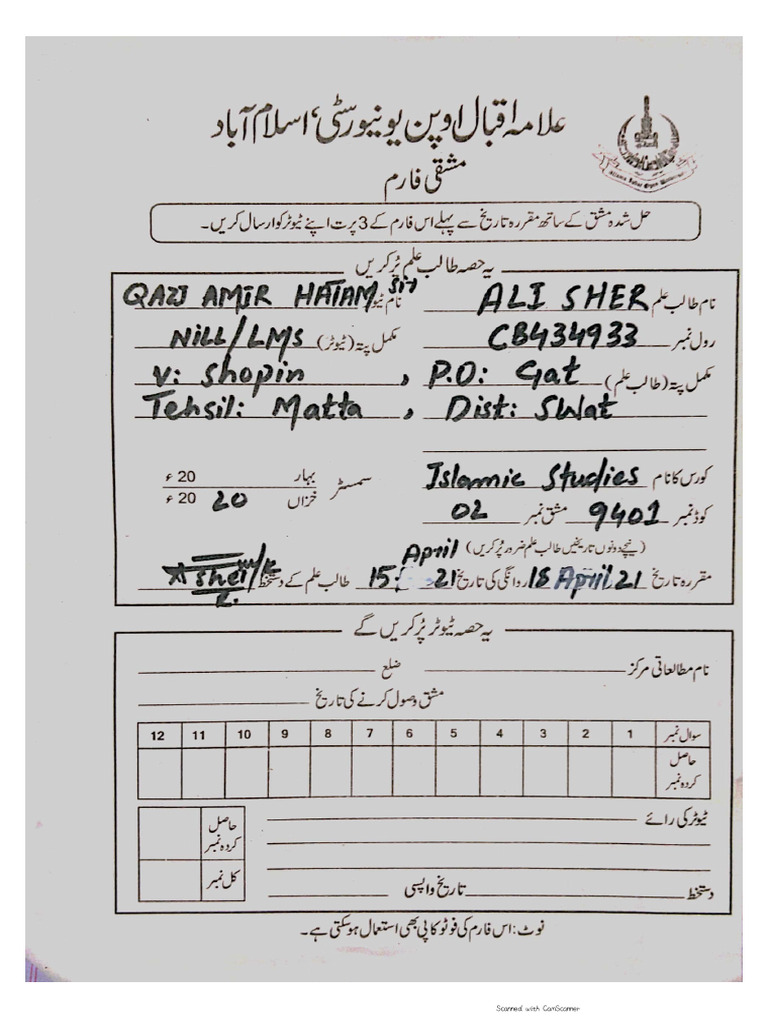 علامہ اقبال اوپن یونیورسٹی، اسلام آباد
Allama Iqbal Open University
مشقی فارم
حل شدہ مشق کے ساتھ مقررہ تاریخ سے پہلے اس فارم کے 3 پرت اپنے ٹیوٹر کو ارسال کریں۔
یہ حصہ طالب علم پُر کریں
نام طالب علم ALI SHER نام ٹیوٹر QAZI AMIR HATAM Sir
رول نمبر CB434933 مکمل پتہ (ٹیوٹر) NiLL/LMs
مکمل پتہ (طالب علم) V: Shopin , P.O: Gat
Tehsil: Matta , Dist: SWat
کورس کا نام Islamic Studies سمسٹر بہار 20 ء
کوڈ نمبر 9401 مشق نمبر 02 خزاں 20 20 ء
(نیچے دونوں تاریخیں طالب علم ضرور پُر کریں)
مقررہ تاریخ 18 April 21 روانگی کی تاریخ 15 April 21 طالب علم کے دستخط
یہ حصہ ٹیوٹر پُر کریں گے
نام مطالعاتی مرکز ضلع
مشق وصول کرنے کی تاریخ
سوال نمبر 1 2 3 4 5 6 7 8 9 10 11 12
حاصل کردہ نمبر
ٹیوٹر کی رائے
حاصل کردہ نمبر
کل نمبر
دستخط تاریخ واپسی
نوٹ: اس فارم کی فوٹو کاپی بھی استعمال ہو سکتی ہے۔
Scanned with CamScanner